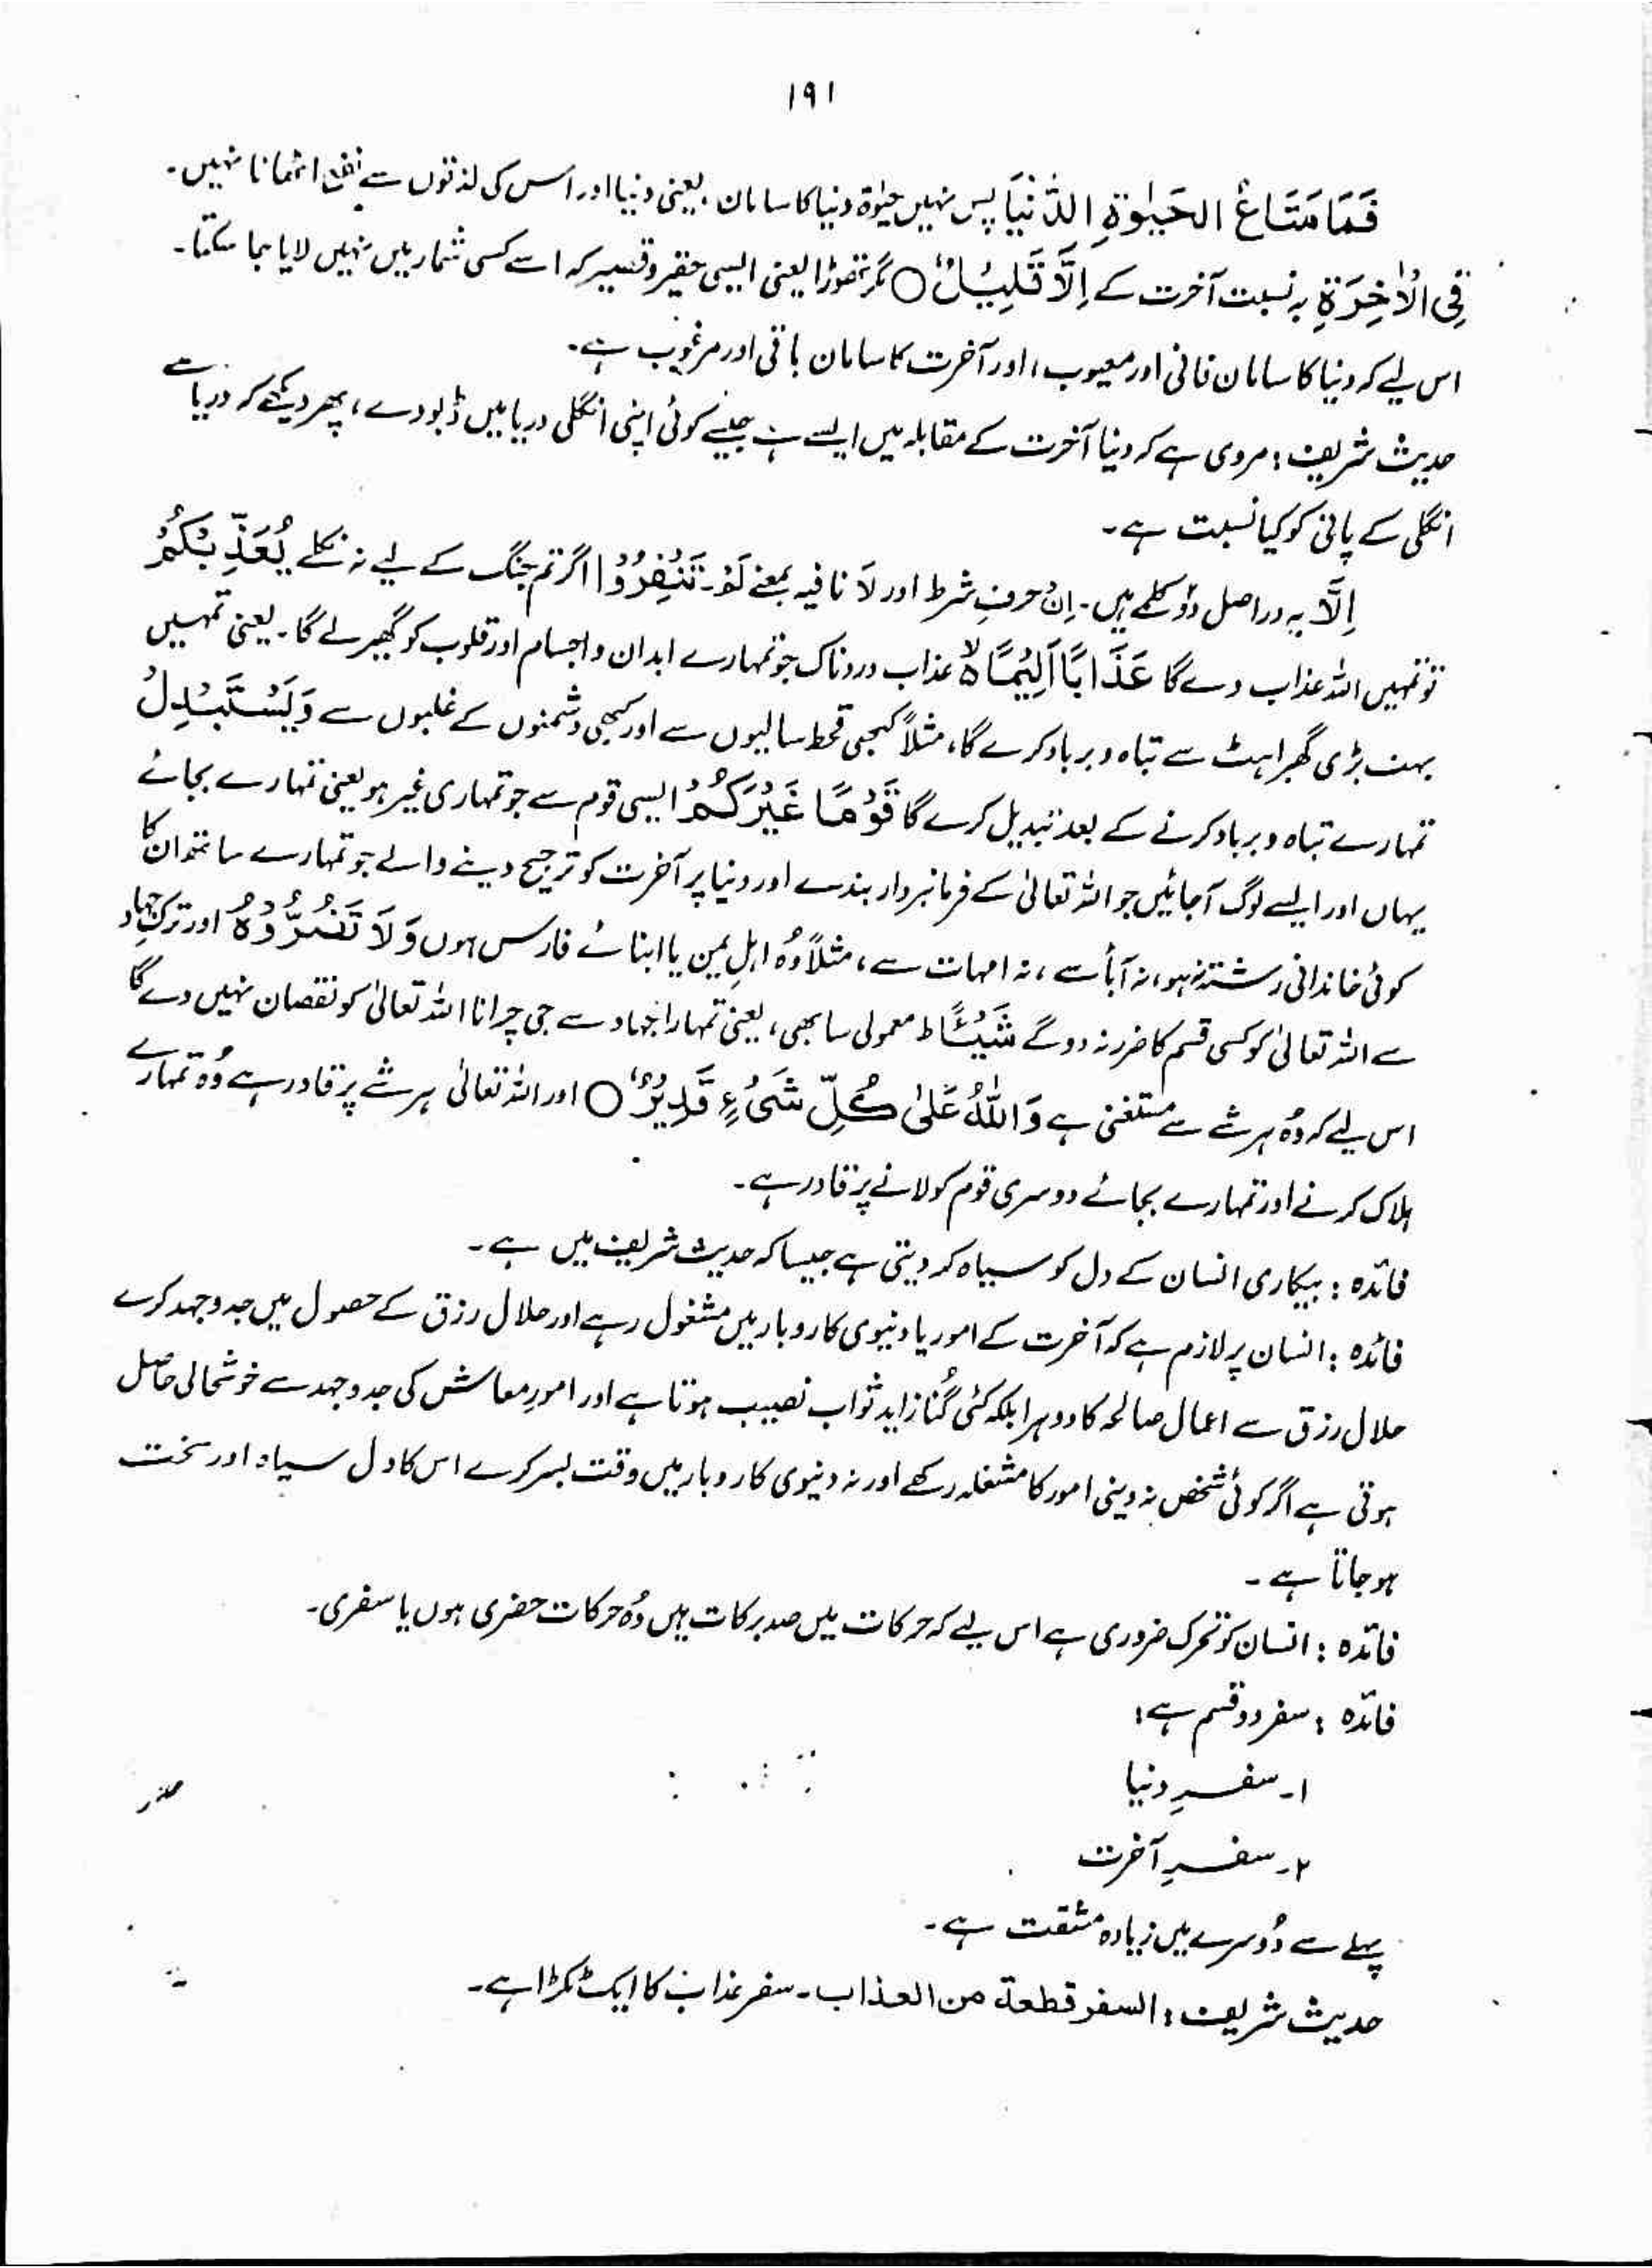 ۱۹۱
فَمَا مَتَاعُ الْحَیٰوۃِ الدُّنْیَا پس نہیں حیٰوۃ دنیا کا سامان . یعنی دنیا اور اس کی لذتوں سے نفع اٹھانا نہیں۔
فِی الْاٰخِرَۃِ بہ نسبت آخرت کے اِلَّا قَلِیْلٌ ○ مگر تھوڑا یعنی ایسی حقیر و قسیر کہ اسے کسی شمار میں نہیں لایا جا سکتا۔
اس لیے کہ دنیا کا سامان فانی اور معیوب، اور آخرت کا سامان باقی اور مرغوب ہے۔
حدیث شریف : مروی ہے کہ دنیا آخرت کے مقابلہ میں ایسے ہے جیسے کوئی اپنی انگلی دریا میں ڈبو دے، پھر دیکھے کہ دریا سے
انگلی کے پانی کو کیا نسبت ہے۔
اِلَّا یہ دراصل دو کلمے ہیں۔ اِنْ حرفِ شرط اور لَا نافیہ بمعنے لَمْ۔ تَنْفِرُوْا اگر تم جنگ کے لیے نہ نکلے یُعَذِّبْکُمْ
تو تمہیں اللہ عذاب دے گا عَذَابًا اَلِیْمًا ۙ عذاب دردناک جو تمہارے ابدان و اجسام اور قلوب کو گھیر لے گا۔ یعنی تمہیں
بہت بڑی گھبراہٹ سے تباہ و برباد کرے گا، مثلاً کبھی قحط سالیوں سے اور کبھی دشمنوں کے غلبوں سے وَیَسْتَبْدِلْ
تمہارے تباہ و برباد کرنے کے بعد تبدیل کرے گا قَوْمًا غَیْرَکُمْ ایسی قوم سے جو تمہاری غیر ہو یعنی تمہارے بجائے
یہاں اور ایسے لوگ آجائیں جو اللہ تعالیٰ کے فرمانبردار بندے اور دنیا پر آخرت کو ترجیح دینے والے جو تمہارے ساتھ ان کا
کوئی خاندانی رشتہ نہ ہو، نہ آبأ سے، نہ امہات سے، مثلاً وُہ اہلِ یمن یا ابنائے فارس ہوں وَلَا تَضُرُّوْہُ اور ترکِ جہاد
سے اللہ تعالیٰ کو کسی قسم کا ضرر نہ دو گے شَیْئًا ط معمولی سا بھی، یعنی تمہارا جہاد سے جی چرانا اللہ تعالیٰ کو نقصان نہیں دے گا
اس لیے کہ وُہ ہر شے سے مستغنی ہے وَاللّٰہُ عَلٰی کُلِّ شَیْءٍ قَدِیْرٌ ○ اور اللہ تعالیٰ ہر شے پر قادر ہے وُہ تمہارے
ہلاک کرنے اور تمہارے بجائے دوسری قوم کو لانے پر قادر ہے۔
فائدہ : بیکاری انسان کے دل کو سیاہ کر دیتی ہے جیسا کہ حدیث شریف میں ہے۔
فائدہ : انسان پر لازم ہے کہ آخرت کے امور یا دنیوی کاروبار میں مشغول رہے اور حلال رزق کے حصول میں جدوجہد کرے
حلال رزق سے اعمال صالحہ کا دوہرا بلکہ کئی گُنا زاید ثواب نصیب ہوتا ہے اور امورِ معاش کی جدوجہد سے خوشحالی حاصل
ہوتی ہے اگر کوئی شخص نہ دینی امور کا مشغلہ رکھے اور نہ دنیوی کاروبار میں وقت بسر کرے اس کا دل سیاہ اور سخت
ہو جاتا ہے۔
فائدہ : انسان کو تحرک ضروری ہے اس لیے کہ حرکات میں صد برکات ہیں وُہ حرکات حضری ہوں یا سفری۔
فائدہ : سفر دو قسم ہے :
۱۔ سفرِ دنیا
۲۔ سفرِ آخرت
پہلے سے دُوسرے میں زیادہ مشقت ہے۔
حدیث شریف : السفر قطعة من العذاب۔ سفر عذاب کا ایک ٹکڑا ہے۔